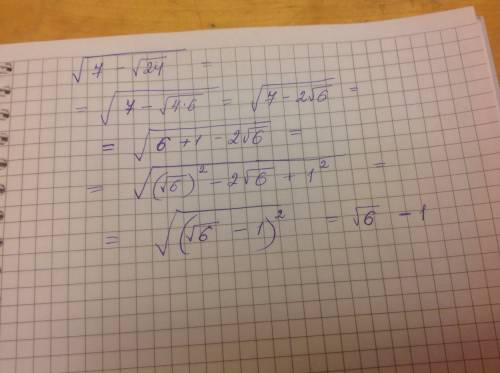 √(7 - √24) =
= √(7 - √(4·6)) = √(7 - 2√6) =
= √(6 + 1 - 2√6) =
= √((√6)² - 2√6 + 1²) =
= √((√6 - 1)²) = √6 - 1